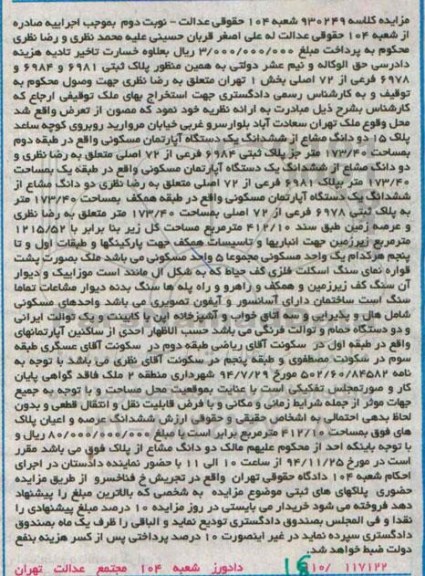 مزایده کلاسه ۹۳۰۲۴۹ شعبه ۱۰۴ حقوقی عدالت - نوبت دوم بموجب اجرائیه صادره
از شعبه ۱۰۴ حقوقی عدالت له علی اصغر قربان حسینی علیه محمد نظری و رضا نظری
محکوم به پرداخت مبلغ ۳/۰۰۰/۰۰۰/۰۰۰ ریال بعلاوه خسارت تاخیر تادیه هزینه
دادرسی حق الوکاله و نیم عشر دولتی به همین منظور پلاک ثبتی ۶۹۸۱ و ۶۹۸۴ و
۶۹۷۸ فرعی از ۷۲ اصلی بخش ۱ تهران متعلق به رضا نظری جهت وصول محکوم به
توقیف و به کارشناس رسمی دادگستری جهت استخراج بهای ملک توقیفی ارجاع که
کارشناس بشرح ذیل مبادرت به ارائه نظریه خود نمود که مصون از تعرض واقع شد
محل وقوع ملک تهران سعادت آباد بلوار سرو غربی خیابان مروارید روبروی کوچه ساعد
پلاک ۱۵ دو دانگ مشاع از ششدانگ یک دستگاه آپارتمان مسکونی واقع در طبقه دوم
بمساحت ۱۷۳/۴۰ متر جز پلاک ثبتی ۶۹۸۴ فرعی از ۷۲ اصلی متعلق به رضا نظری و
دو دانگ مشاع از ششدانگ یک دستگاه آپارتمان مسکونی واقع در طبقه یک بمساحت
۱۷۳/۴۰ متر بپلاک ۶۹۸۱ فرعی از ۷۲ اصلی متعلق به رضا نظری دو دانگ مشاع از
ششدانگ یک دستگاه آپارتمان مسکونی واقع در طبقه همکف بمساحت ۱۷۳/۴۰ متر
به پلاک ثبتی ۶۹۷۸ فرعی از ۷۲ اصلی بمساحت ۱۷۳/۴۰ متر متعلق به رضا نظری
و عرصه زمین طبق سند ۴۱۲/۱۰ مترمربع مساحت کل زیر بنا برابر با ۱۲۱۵/۵۲
مترمربع زیرزمین جهت انباریها و تاسیسات همکف جهت پارکینگها و طبقات اول و تا
پنجم هرکدام یک واحد مسکونی مجموعا ۵ واحد مسکونی می باشد ملک بصورت پشت
قواره نمای سنگ اسکلت فلزی کف حیاط که به شکل ال مانند است موزاییک و دیوار
آن سنگ کف زیرزمین و همکف و راهرو و راه پله ها سنگ بدنه دیوار مشاعات تماما
سنگ است ساختمان دارای آسانسور و آیفون تصویری می باشد واحدهای مسکونی
شامل هال و پذیرایی و سه اتاق خواب و آشپزخانه اپن با کابینت و یک توالت ایرانی
و دو دستگاه حمام و توالت فرنگی می باشد حسب الاظهار احدی از ساکنین آپارتمانهای
واقع در طبقه اول در سکونت آقای ریاضی طبقه دوم در سکونت آقای عسگری طبقه
سوم در سکونت مصطفوی و طبقه پنجم در سکونت آقای نظری می باشد با توجه به
نامه ۵۰۲/۶۰/۸۴۵۸۲ مورخ ۹۴/۷/۲۹ شهرداری منطقه ۲ ملک فاقد گواهی پایان
کار و صورتمجلس تفکیکی است با عنایت بموقعیت محل مساحت و با توجه به جمیع
جهات موثر از جمله شرایط زمانی و مکانی و با فرض قابلیت نقل و انتقال قطعی و بدون
لحاظ بدهی احتمالی به اشخاص حقیقی و حقوقی ارزش ششدانگ عرصه و اعیان پلاک
های فوق بمساحت ۴۱۲/۱۰ مترمربع برابر است با مبلغ ۸۰/۰۰۰/۰۰۰/۰۰۰ ریال و
با توجه باینکه احد از محکوم علیهم مالک دو دانگ مشاع از پلاک فوق می باشد مقرر
است در مورخ ۹۴/۱۱/۲۵ از ساعت ۱۰ الی ۱۱ با حضور نماینده دادستان در اجرای
احکام شعبه ۱۰۴ دادگاه حقوقی تهران واقع در تجریش خ فناخسرو از طریق مزایده
حضوری پلاکهای های ثبتی موضوع مزایده به شخصی که بالاترین مبلغ را پیشنهاد
دهد فروخته می شود خریدار می بایستی در روز مزایده ۱۰ درصد مبلغ پیشنهادی را
نقدا و فی المجلس بصندوق دادگستری تودیع نماید و الباقی را ظرف یک ماه بصندوق
دادگستری سپرده نماید در غیر اینصورت ۱۰ درصد پرداختی پس از کسر هزینه بنفع
دولت ضبط خواهد شد.
۱۱۷۱۲۲ /۱۱۰ دادورز شعبه ۱۰۴ مجتمع عدالت تهران